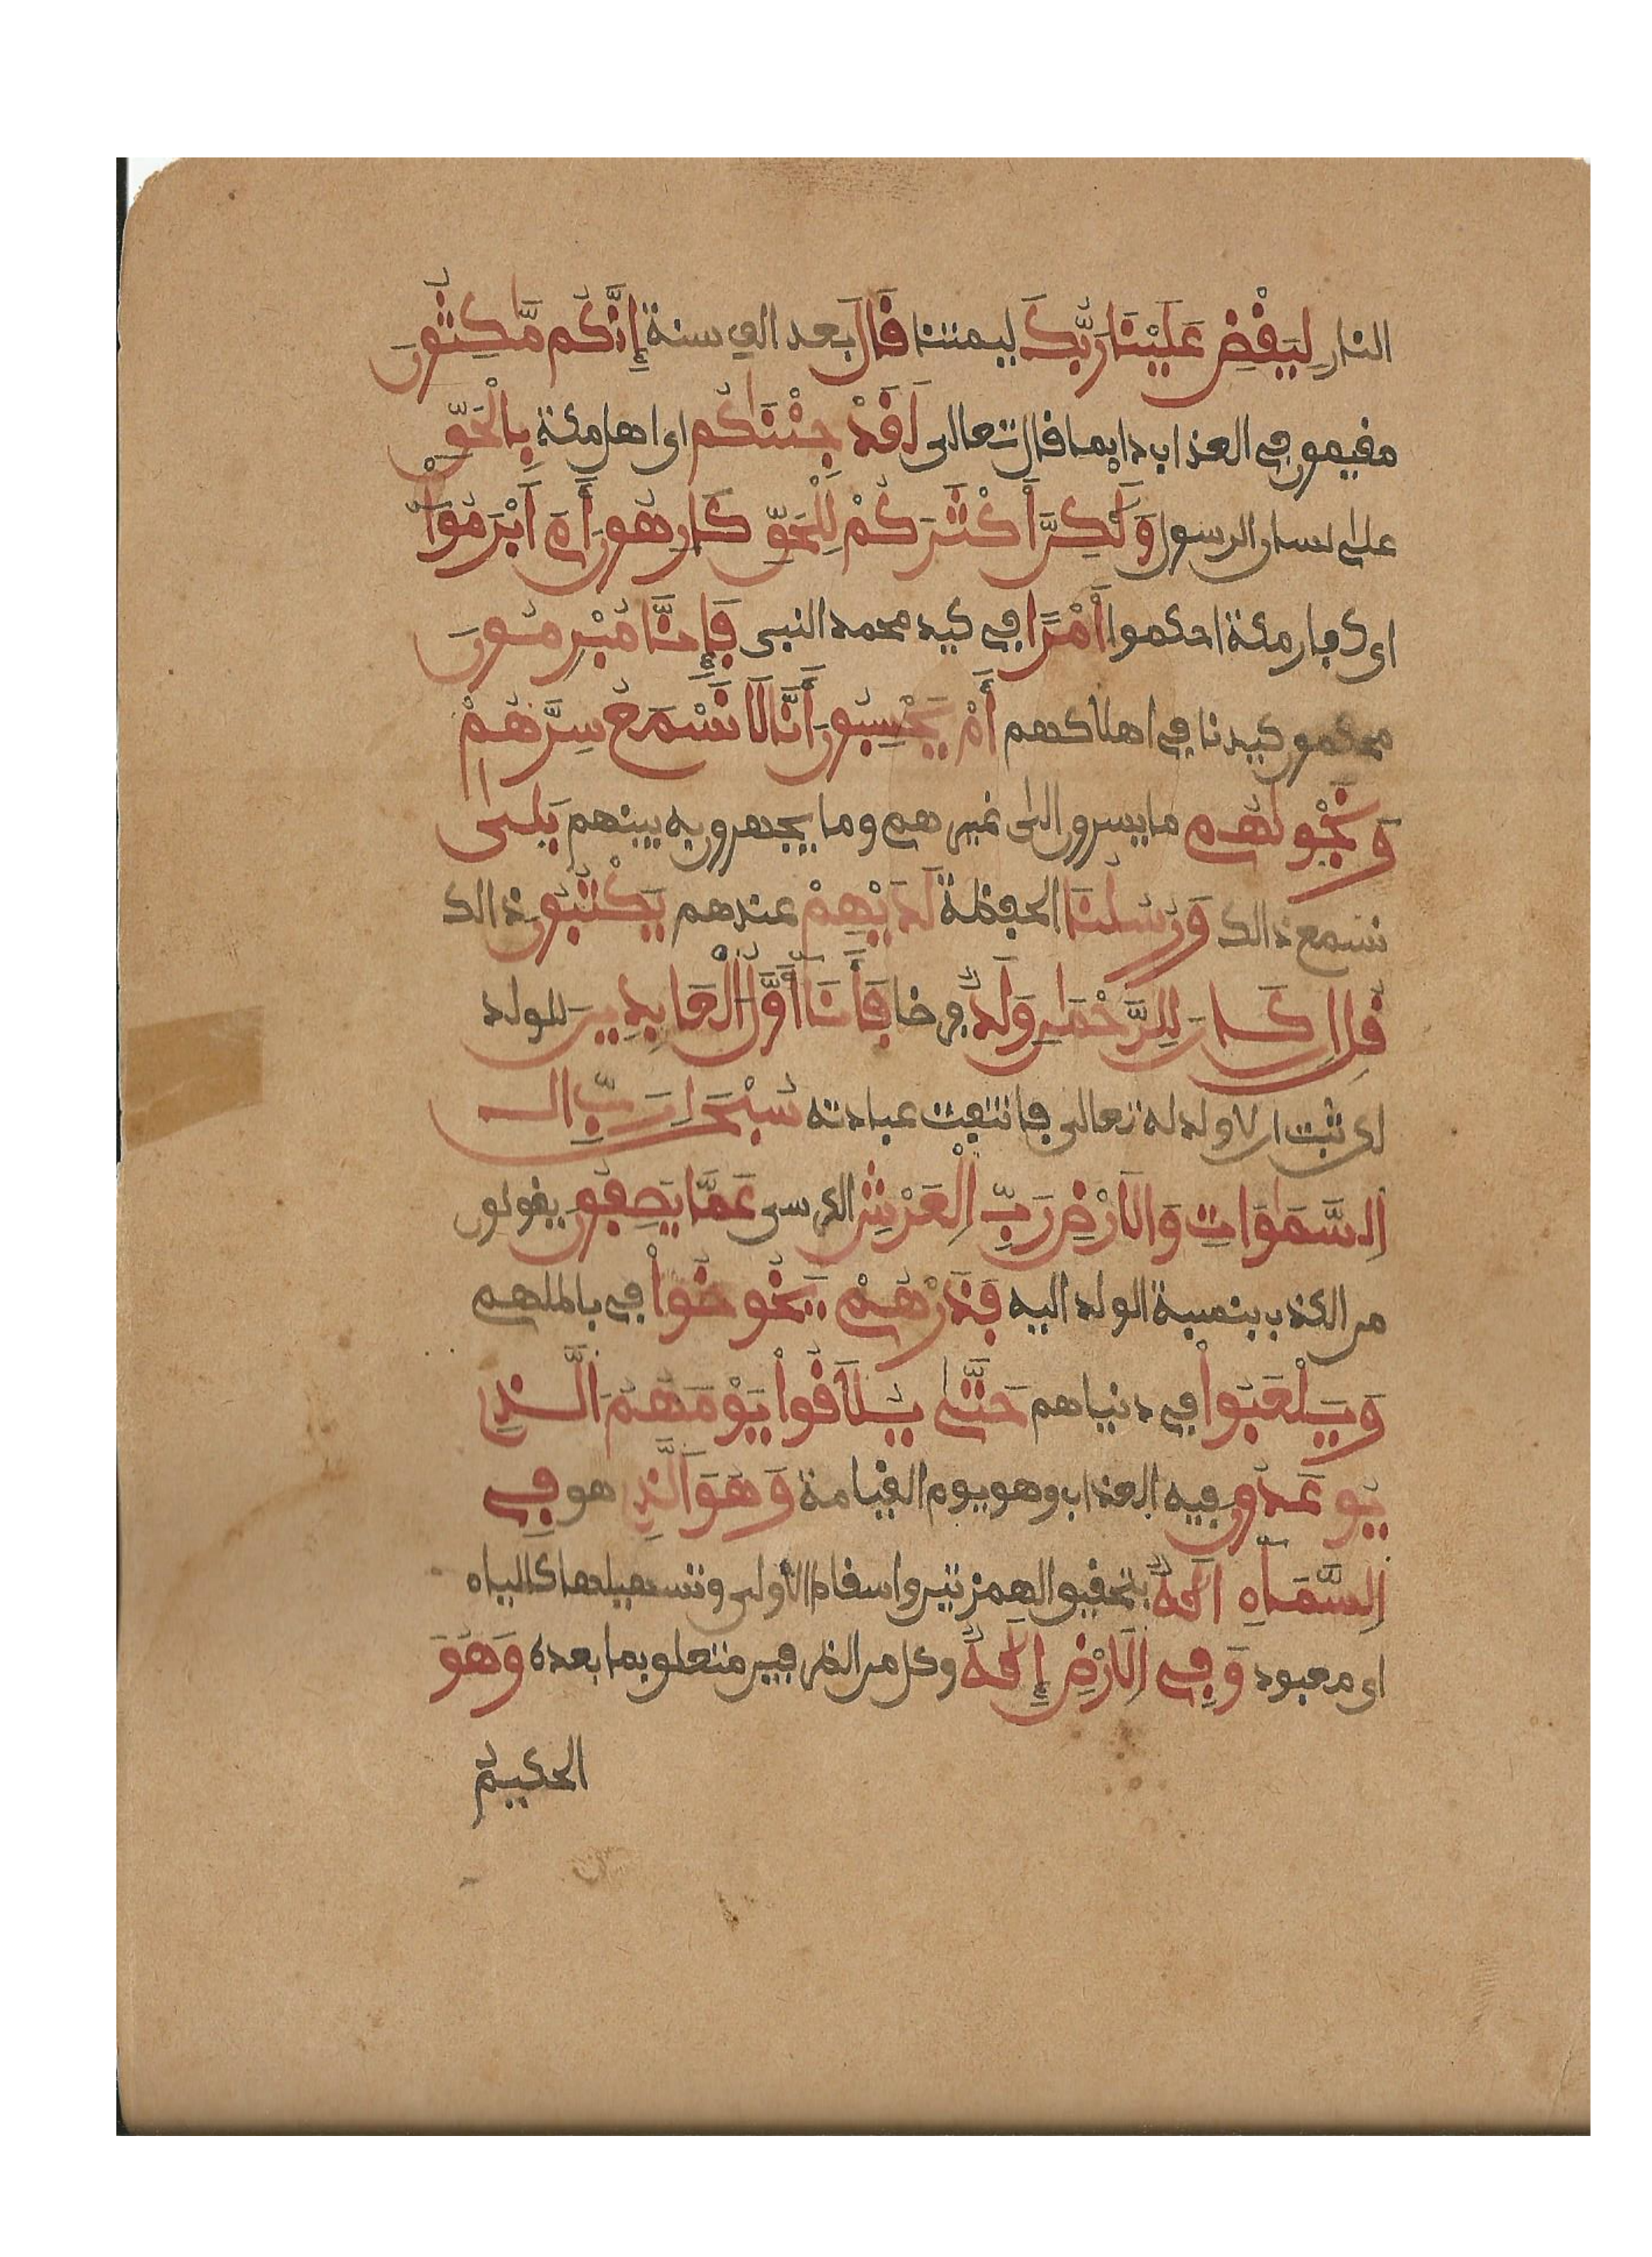 النار لِيَقْضِ عَلَيْنَا رَبُّكَ ليمتنا قَالَ بعد الف سنة إِنَّكُم مَّٰكِثُونَ
مقيمون في العذاب دايما قال تعالى لَقَدْ جِئْنَٰكُم اى اهل مكة بِالْحَقِّ
على لسان الرسول وَلَٰكِنَّ أَكْثَرَكُمْ لِلْحَقِّ كَارِهُونَ أَمَ ابْرَمُوٓاْ
اى كفار مكة احكموا أَمْرًا في كيد محمد النبى فَإِنَّا مُبْرِمُونَ
محكمون كيدنا في اهلاكهم أَمْ يَحْسِبُونَ أَنَّا لَا نَسْمَعُ سِرَّهُمْ
وَنَجْوٰىهُم ما يسرون الى غيرهم وما يجهرون به بينهم بَلَىٰ
نسمع ذالك وَرُسُلُنَا الحفظة لَدَيْهِمْ عندهم يَكْتُبُونَ ذالك
قُلِ ان كَانَ لِلرَّحْمَٰنِ وَلَدٌ فرضا فَأَنَآ أَوَّلُ الْعَابِدِينَ للولد
لكن ثبت ان لا ولد له تعالى فانتفت عبادته سُبْحَٰنَ رَبِّ الـ
السَّمَٰوَاتِ وَالَارْضِ رَبِّ الْعَرْشِ الكرسى عَمَّا يَصِفُونَ يقولون
من الكذب بنسبة الولد اليه فَذَرْهُمْ يَخُوضُواْ في باطلهم
وَيَلْعَبُواْ في دنياهم حَتَّىٰ يُلَٰقُواْ يَوْمَهُمُ الَّذِى
يُوعَدُونَ فيه العذاب وهو يوم القيامة وَهُوَ الَّذِى هو فِى
السَّمَآءِ الَٰهٌ بتحقيق الهمزتين واسقاط الاولى وتسهيلها كالياء
اى معبود وَفِى الَارْضِ إِلَٰهٌ وكل من الظرفين متعلق بما بعده وَهُوَ
الحكيمُ